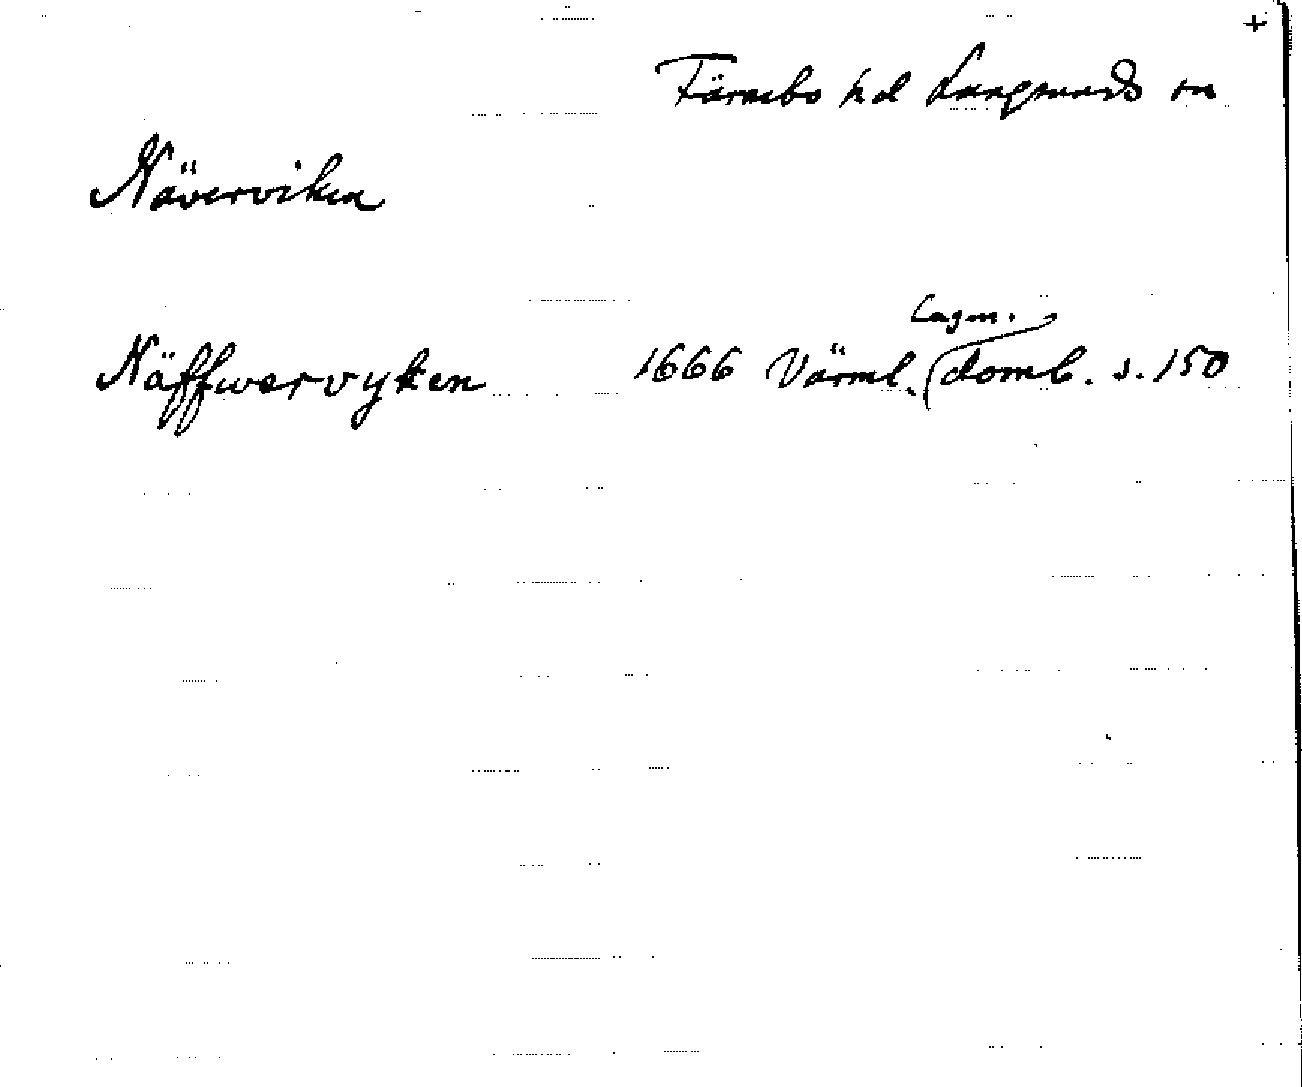 +
Färnebo hd Lungsunds sn
Näverviken
Näffwervyken 1666 Värml. Lagm. domb. s. 150